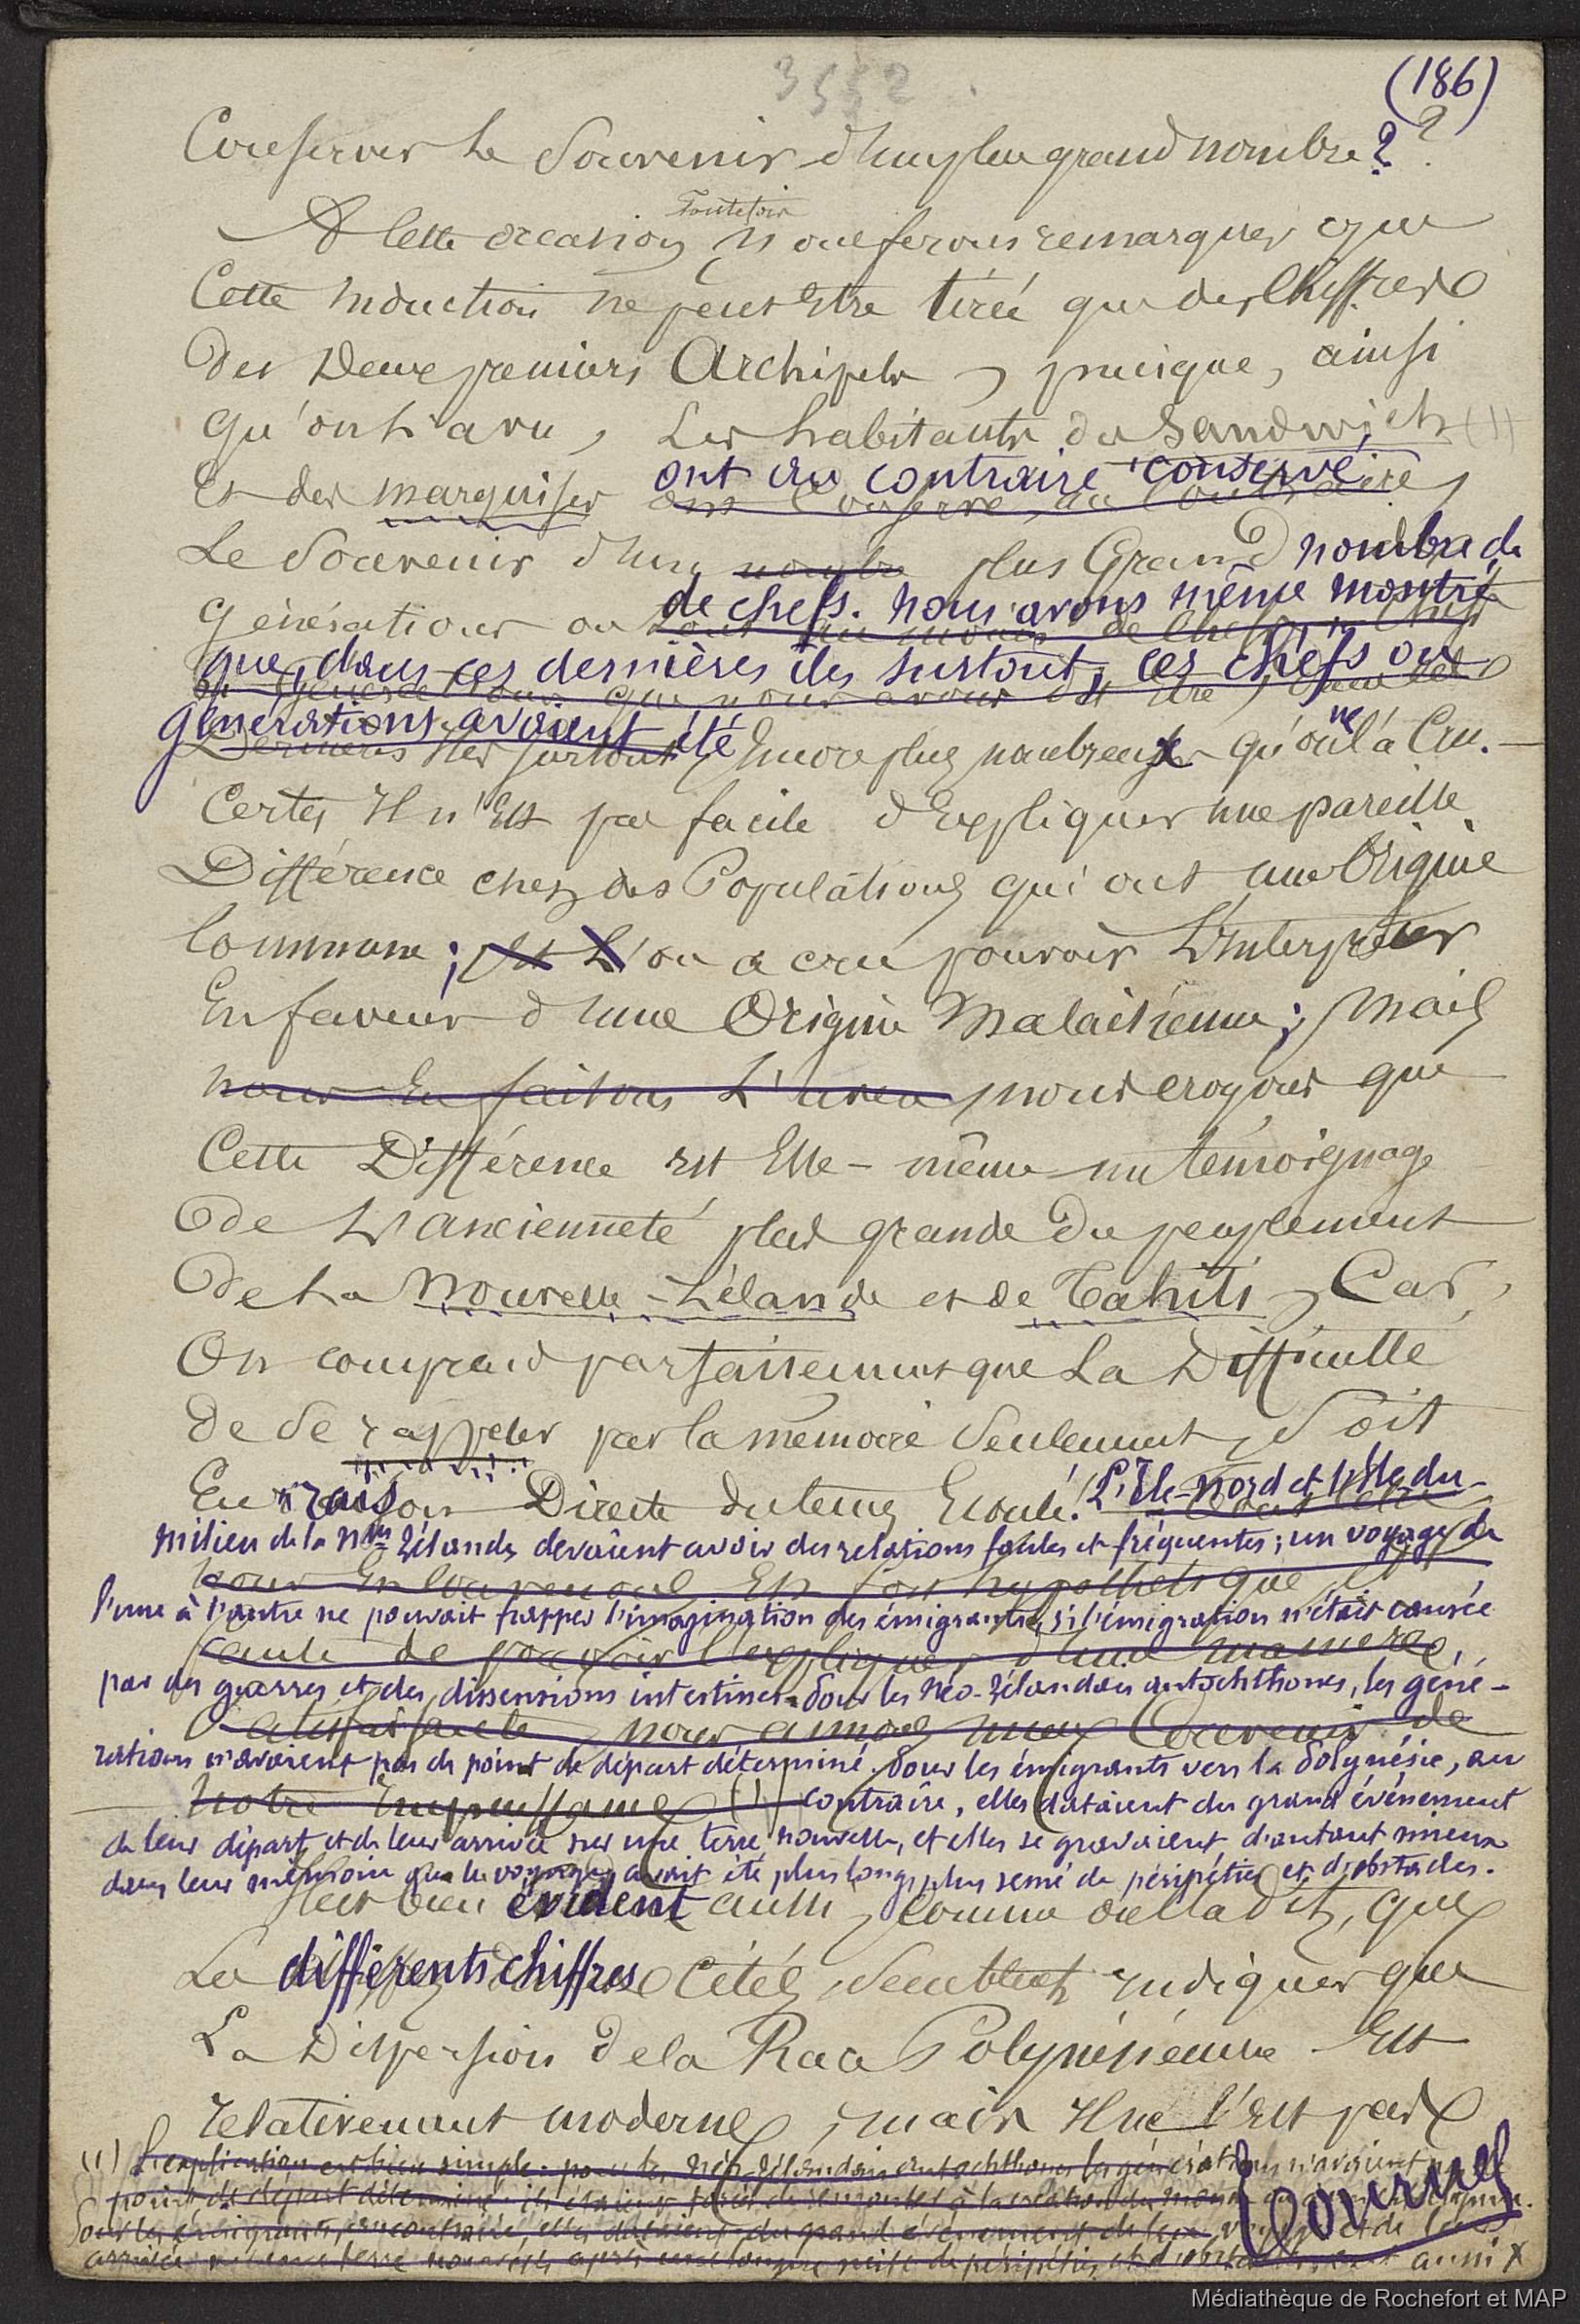 3552
(186)
Conserver le Souvenir d'un plus grand nombre ? ?
Toutefois
A cette occasion nous ferons remarquer que
Cette induction ne peut Etre tirée que des Chiffres
Des Deux premiers Archipels, puisque, ainsi
qu'on l'a vu, Les habitants des Sandwich (1)
ont au contraire conservé
Et des marquises ont Conservé, au Contraire,
Le Souvenir d'un nombre plus Grand nombre de
de chefs. nous avons même montré
générations ou tout au moins de chefs,
que, dans ces dernières îles surtout, ces chefs ou
générations avaient été
Dernières îles surtout, Encore plus nombreux qu'on ne l'a Cru.
Certes Il n'Est pas facile d'Expliquer une pareille
Différence chez des Populations qui ont une Origine
Commune ; Et L'on a cru pouvoir L'Interpréter
En faveur d'une Origine Malaisienne ; Mais
nous En faisons L'aveu, nous croyons que
Cette Différence est Elle-même un témoignage
De L'ancienneté plus grande Du peuplement
De La Nouvelle-Zélande et de Tahiti, Car,
On comprend parfaitement que La Difficulté
De Se rappeler par la mémoire Seulement, Soit
En raison Directe du temps Ecoulé. L'Ile-Nord et l'Ile du
milieu de la Nlle Zélande devaient avoir des relations faciles et fréquentes ; un voyage de
l'une à l'autre ne pouvait frapper l'imagination des émigrants, si l'émigration n'était causée
faute de pouvoir l'expliquer d'une manière
par des guerres et des dissensions intestines. Pour les Néo-Zélandais autochthones, les géné-
Satisfaisante, nous aimons mieux Convenir de
rations n'avaient pas de point de départ déterminé. Pour les émigrants vers la Polynésie, au
notre Impuissance (1) contraire, elles dataient du grand événement
de leur départ et de leur arrivée sur une terre nouvelle, et elles se gravaient d'autant mieux
dans leur mémoire que le voyage avait été plus long, plus semé de péripéties et d'obstacles.
Il est bien évident aussi, Comme on l'a dit, que
Les différents chiffres Cités, Semblent Indiquer que
La Dispersion De la Race Polynésienne Est
relativement moderne, mais Il ne l'est pas
(1) L'explication est bien simple : pour les Néo-Zélandais autochthones les générations n'avaient
point de départ déterminé
Pour les émigrants, au contraire, elles dataient du grand événement de leur voyage et de leur
arrivée sur une terre nouvelle après une longue suite de péripéties et d'obstacles aussi X
Tournez
Médiathèque de Rochefort et MAP